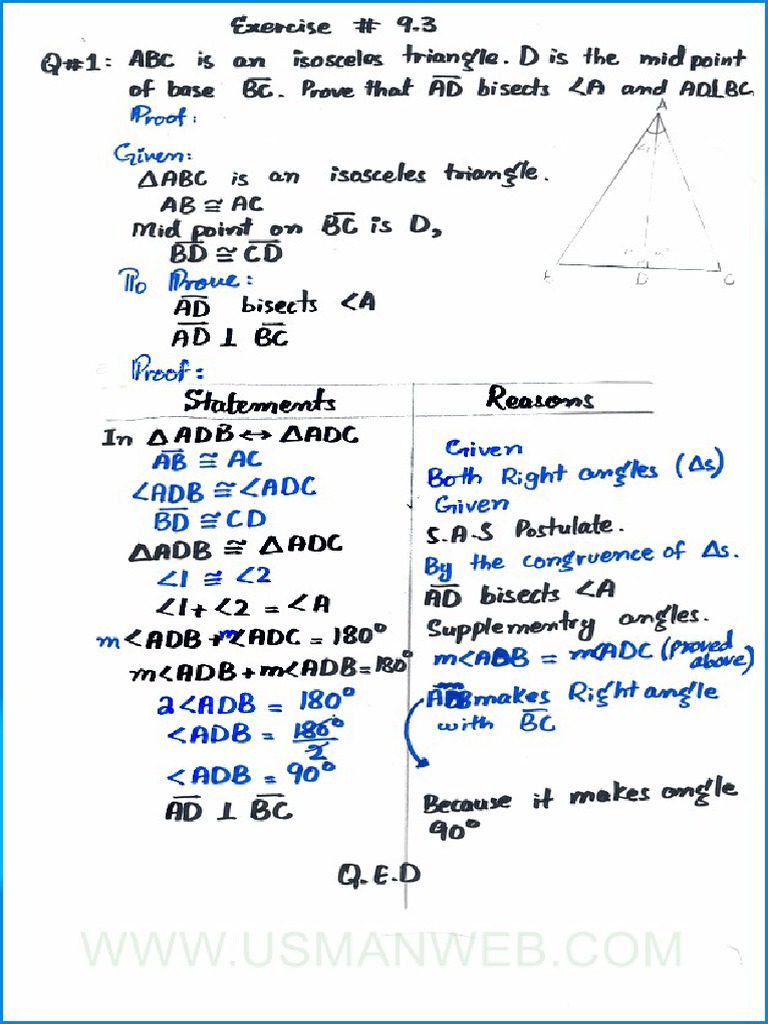 Exercise # 9.3
Q#1: ABC is an isosceles triangle. D is the mid point
of base BC. Prove that AD bisects ∠A and AD⊥BC.
Proof:
Given:
△ABC is an isosceles triangle.
AB ≅ AC
Mid point on BC is D,
BD ≅ CD
To Prove:
AD bisects ∠A
AD ⊥ BC
A
B
D
C
Proof:
Statements
Reasons
In △ADB ↔ △ADC
AB ≅ AC
Given
∠ADB ≅ ∠ADC
Both Right angles (△s)
BD ≅ CD
Given
△ADB ≅ △ADC
S.A.S Postulate.
∠1 ≅ ∠2
By the congruence of △s.
∠1 + ∠2 = ∠A
AD bisects ∠A
m∠ADB + m∠ADC = 180°
Supplementry angles.
m∠ADB + m∠ADB = 180°
m∠ADB = m∠ADC (Proved
above)
2∠ADB = 180°
makes Right angle
with BC
∠ADB = 180°/2
∠ADB = 90°
AD ⊥ BC
Because it makes angle
90°
Q.E.D
WWW.USMANWEB.COM